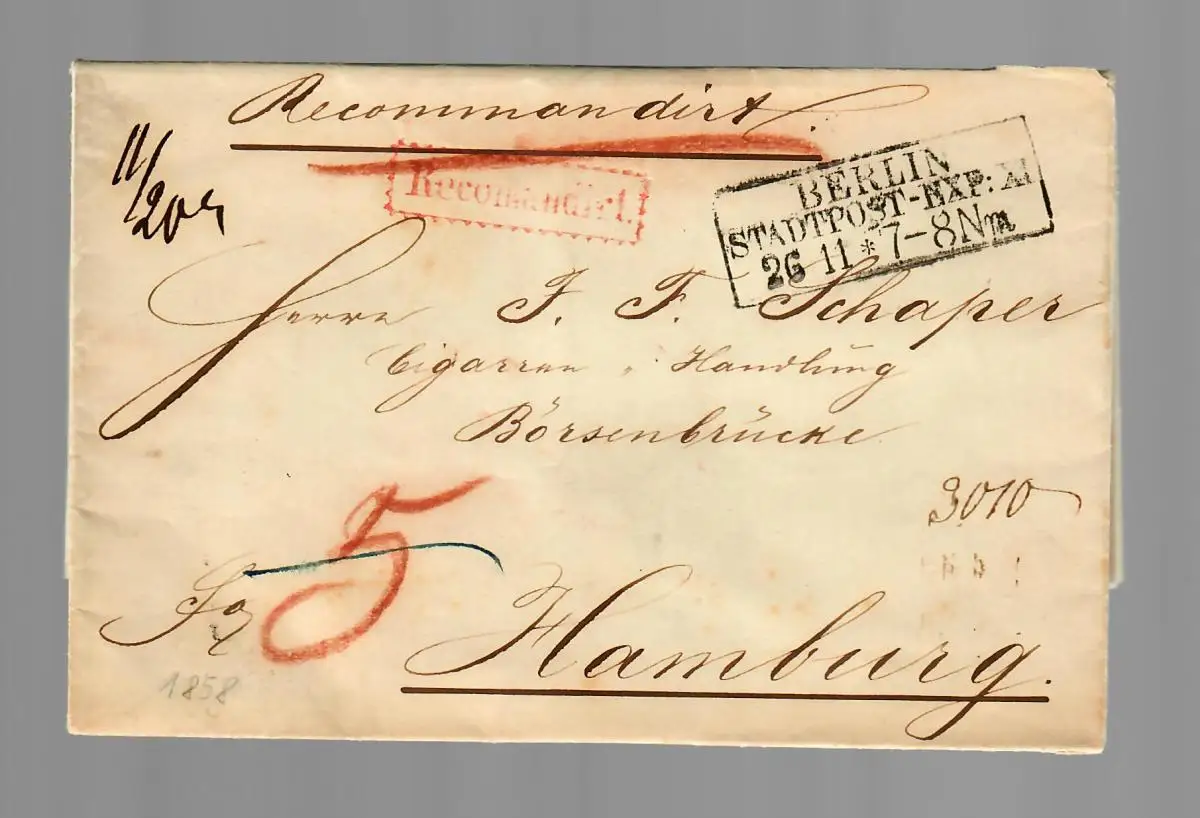 Recommandirt.
Recomandirt.
BERLIN
STADTPOST-EXP: XI
26 11 * 7-8 Nm
11/20
Herrn J. F. Schaper
Cigarren-Handlung
Börsenbrücke
3010
5
Hamburg.
1858